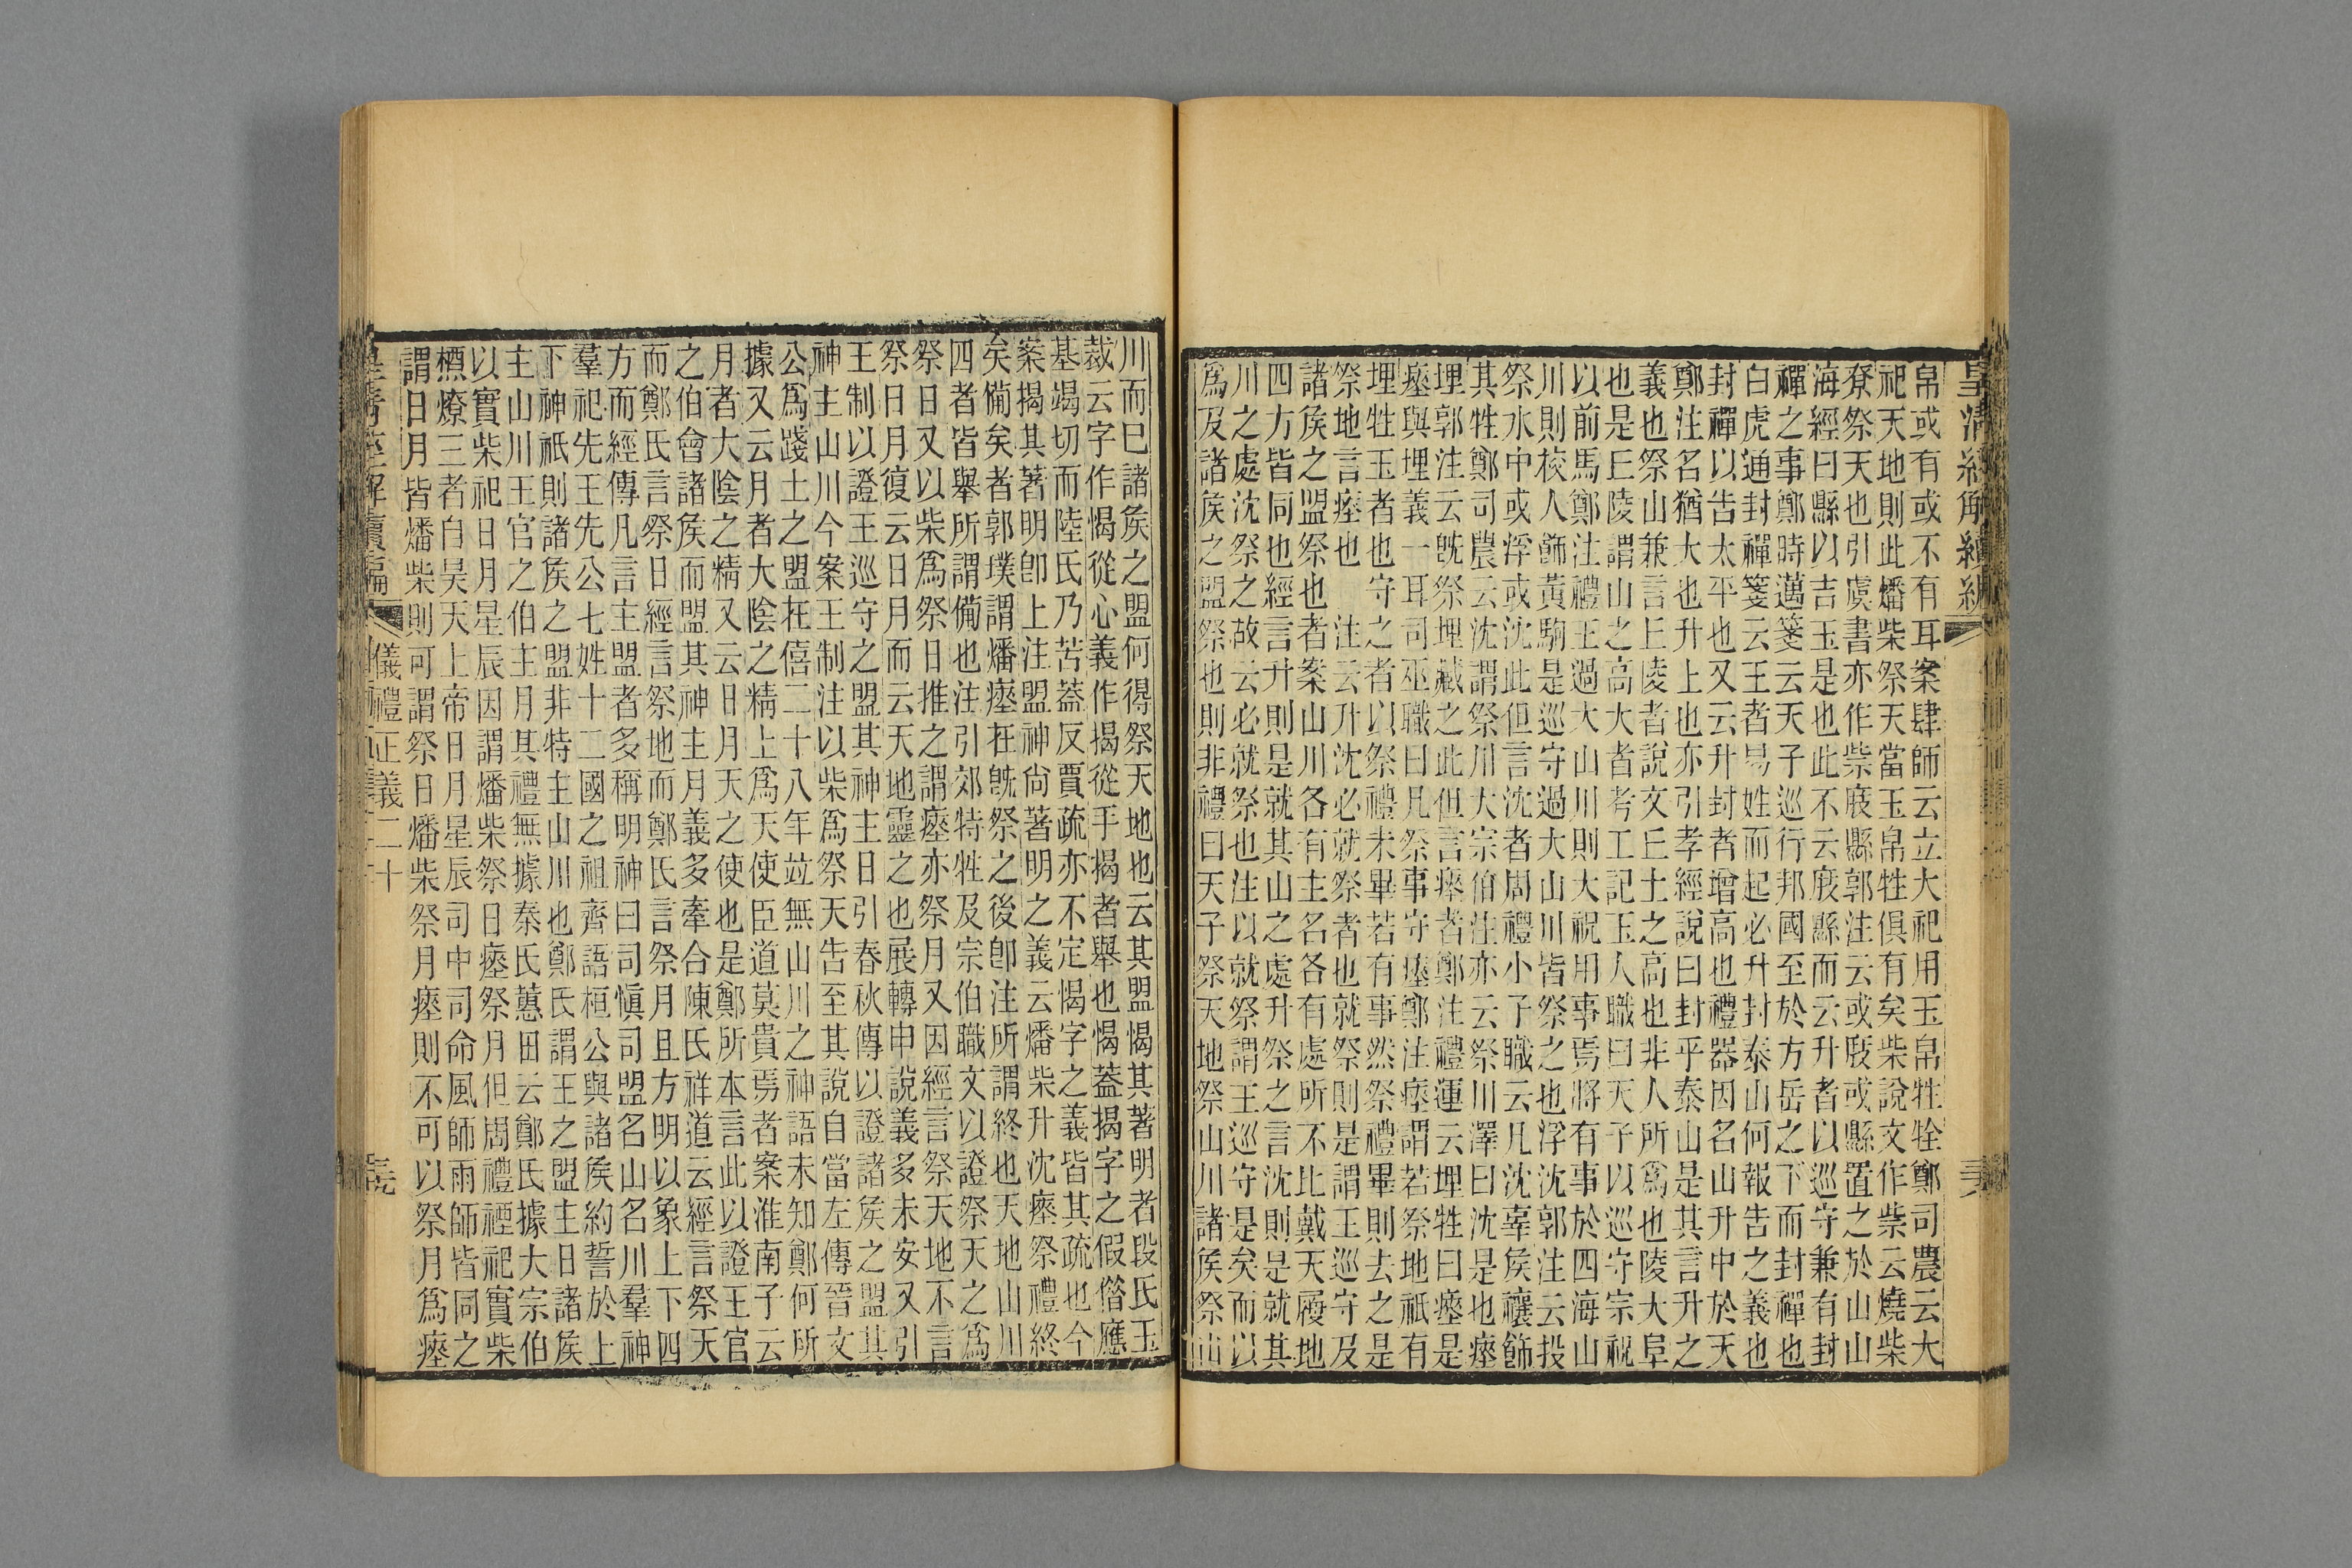 皇清經解續編
帛或有或不有耳案肆師云立大祀用玉帛牲牷鄭司農云大
祀天地則此燔柴祭天當玉帛牲俱有矣柴說文作祡云燒柴
尞祭天也引虞書亦作祡庪縣郭注云或庪或縣置之於山山
海經曰縣以吉玉是也此不云庪縣而云升者以巡守兼有封
禪之事鄭時邁箋云天子巡行邦國至於方岳之下而封禪也
白虎通封禪箋云王者易姓而起必升封泰山何報告之義也
封禪以告太平也又云升封者增高也禮器因名山升中於天
鄭注名猶大也升上也亦引孝經說曰封乎泰山是其言升之
義也祭山兼言丘陵者說文丘土之高也非人所爲也陵大阜
也是丘陵謂山之高大者考工記玉人職曰天子以巡守宗祝
以前馬鄭注禮王過大山川則大祝用事焉將有事於四海山
川則校人飾黃駒是巡守過大山川皆祭之也浮沈郭注云投
祭水中或浮或沈此但言沈者周禮小子職云凡沈辜侯禳飾
其牲鄭司農云沈謂祭川大宗伯注亦云祭川澤曰沈是也瘞
埋郭注云旣祭埋藏之此但言瘞者鄭注禮運云埋牲曰瘞是
瘞與埋義一耳司巫職曰凡祭事守瘞鄭注瘞謂若祭地祇有
埋牲玉者也守之者以祭禮未畢若有事然祭禮畢則去之是
祭地言瘞也　注云升沈必就祭者也就祭則是謂王巡守及
諸矦之盟祭也者案山川各有主名各有處所不比戴天履地
四方皆同也經言升則是就其山之處升祭之言沈則是就其
川之處沈祭之故云必就祭也注以就祭謂王巡守是矣而以
爲及諸矦之盟祭也則非禮曰天子祭天地祭山川諸矦祭山
川而巳諸矦之盟何得祭天地也云其盟愒其著明者段氏玉
裁云字作愒從心義作揭從手揭者舉也愒蓋揭字之假偕應
基竭切而陸氏乃苦蓋反賈疏亦不定愒字之義皆其疏也今
案揭其著明卽上注盟神尙著明之義云燔柴升沈瘞祭禮終
矣備矣者郭璞謂燔瘞在旣祭之後卽注所謂終也天地山川
四者皆舉所謂備也注引郊特牲及宗伯職文以證祭天之爲
祭日又以柴爲祭日推之謂瘞亦祭月又因經言祭天地不言
祭日月復云日月而云天地靈之也展轉申說義多未安又引
王制以證王巡守之盟其神主日引春秋傳以證諸矦之盟其
神主山川今案王制注以柴爲祭天告至其說自當左傳晉文
公爲踐土之盟在僖二十八年竝無山川之神語未知鄭何所
據又云月者大陰之精上爲天使臣道莫貴焉者案淮南子云
月者大陰之精又云日月天之使也是鄭所本言此以證王官
之伯會諸矦而盟其神主月義多牽合陳氏祥道云經言祭天
而鄭氏言祭日經言祭地而鄭氏言祭月且方明以象上下四
方而經傳凡言主盟者多稱明神曰司愼司盟名山名川羣神
羣祀先王先公七姓十二國之祖齊語桓公與諸矦約誓於上
下神祇則諸矦之盟非特主山川也鄭氏謂王之盟主日諸矦
主山川王官之伯主月其禮無據秦氏蕙田云鄭氏據大宗伯
以實柴祀日月星辰因謂燔柴祭日瘞祭月但周禮禋祀實柴
槱燎三者自昊天上帝日月星辰司中司命風師雨師皆同之
謂日月皆燔柴則可謂祭日燔柴祭月瘞則不可以祭月爲瘞
皇清經解續編
儀禮正義二十